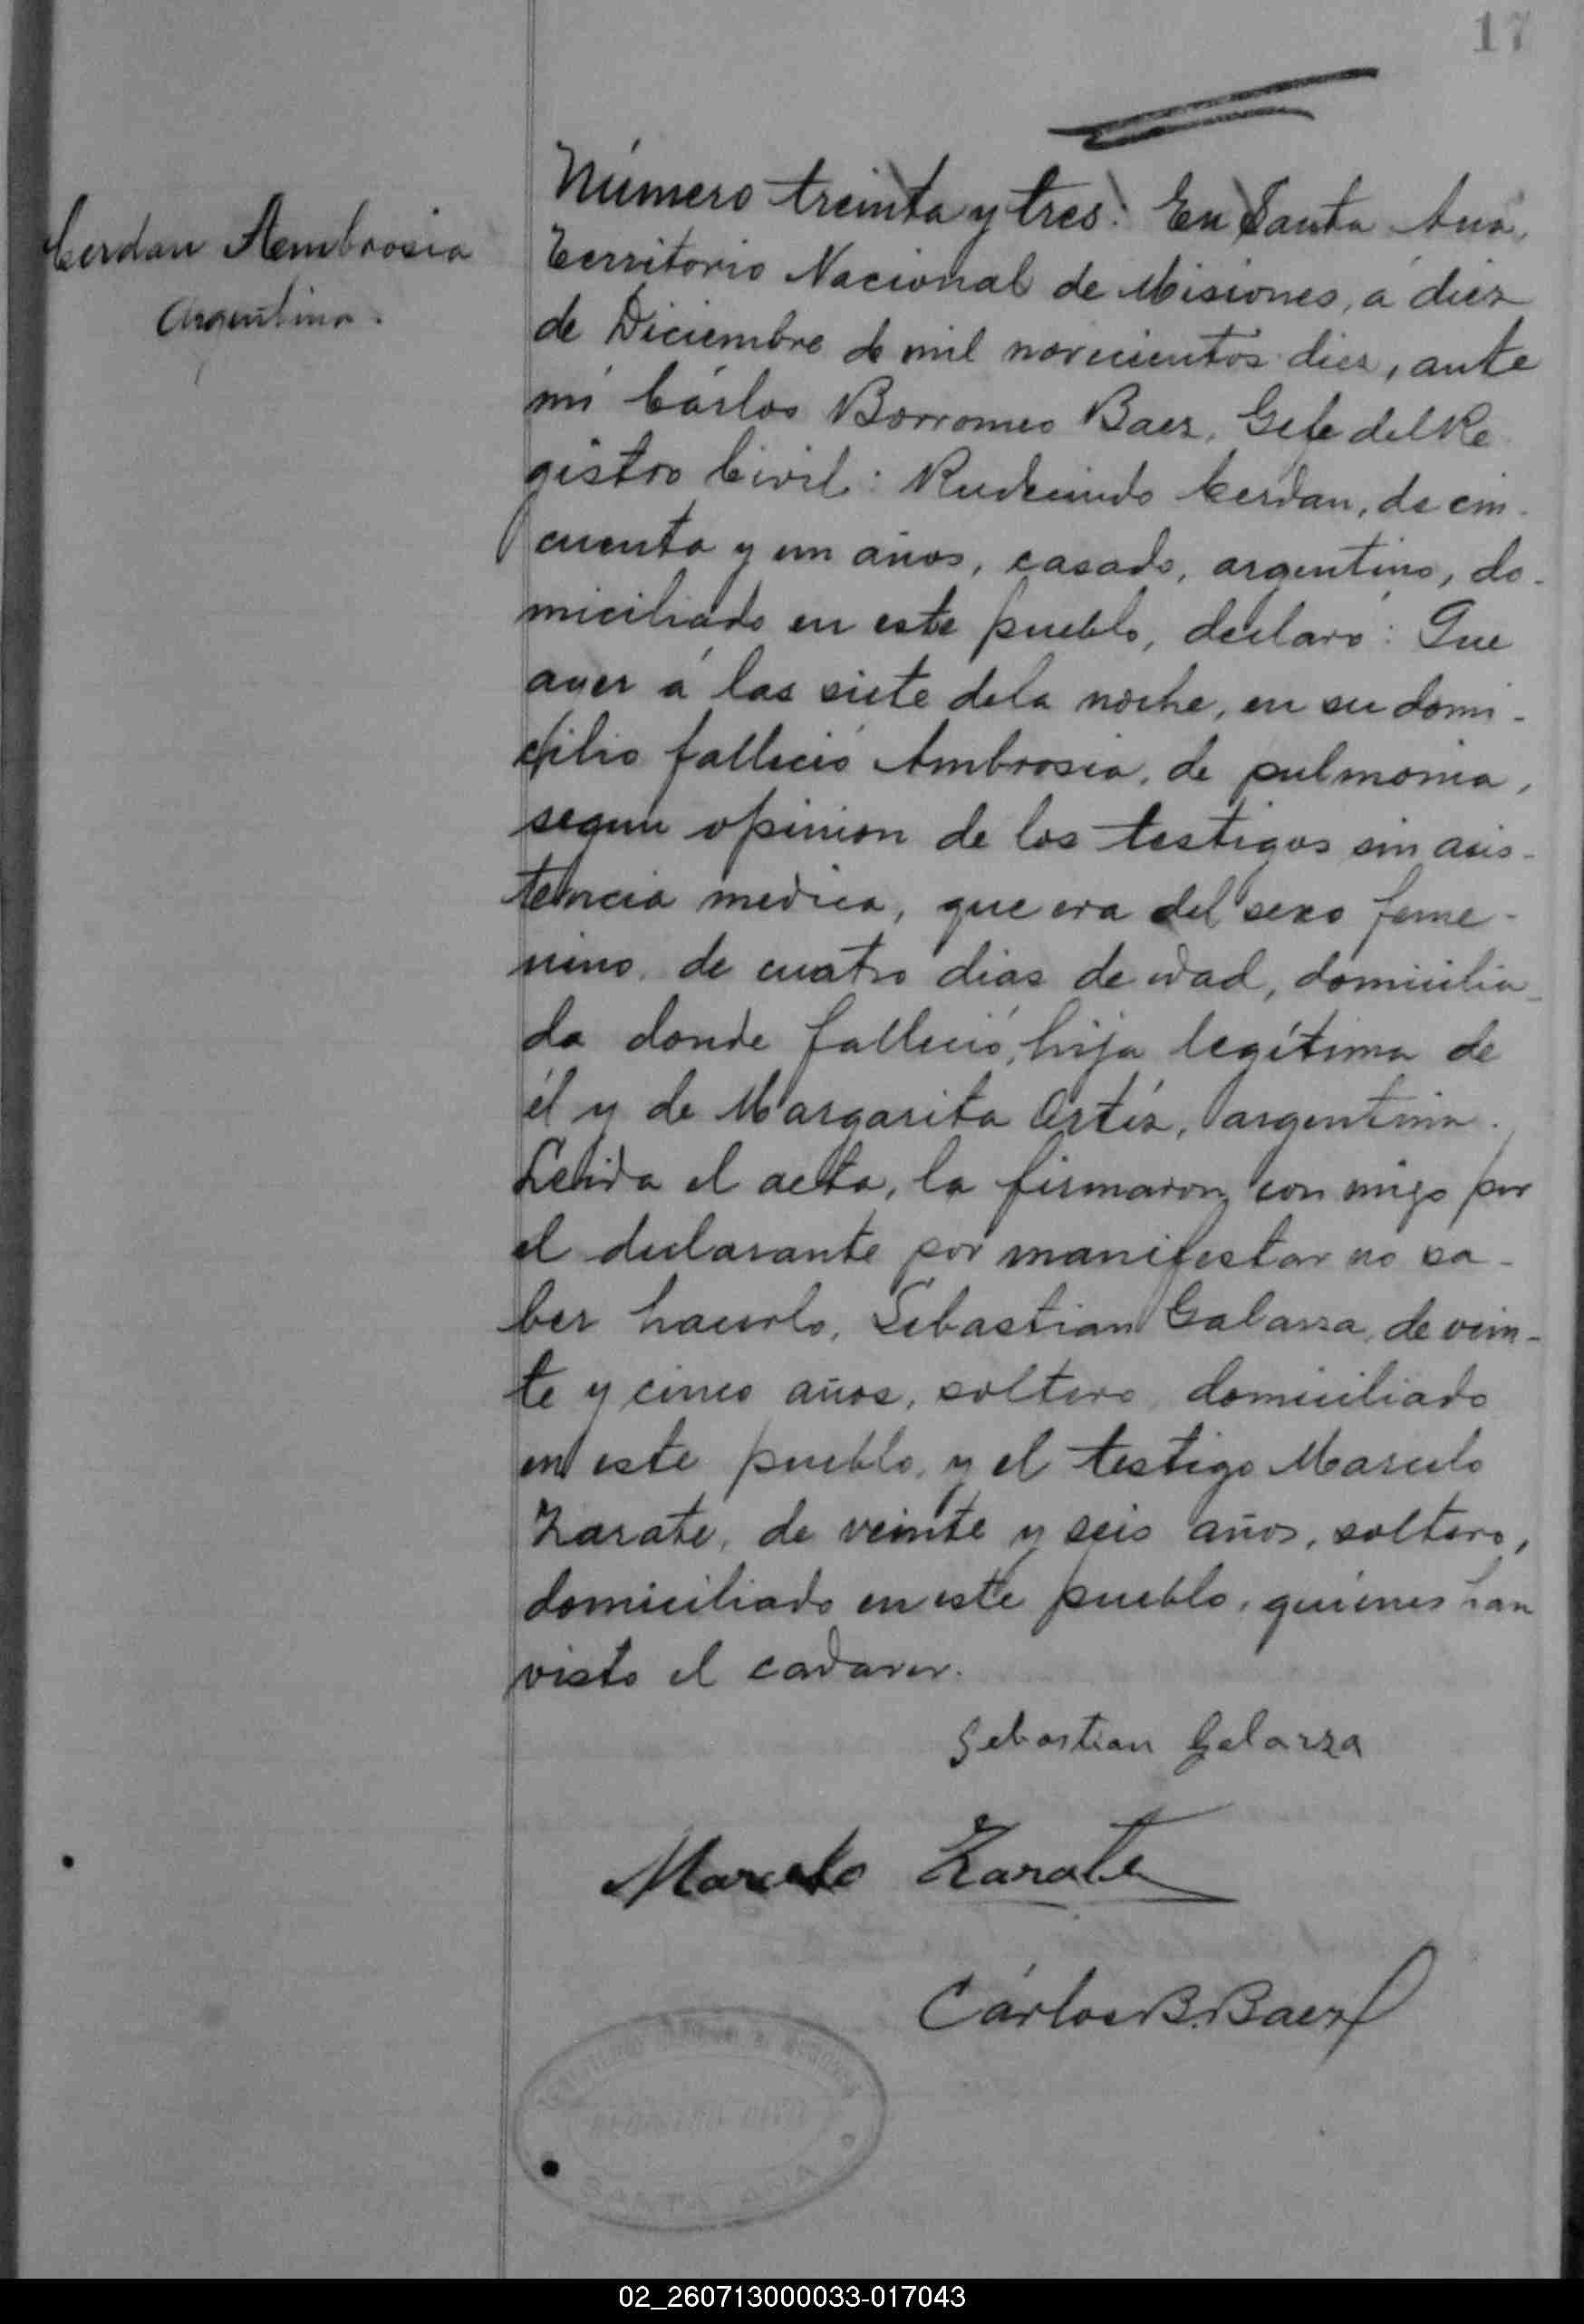 17
Cerdan Ambrosia
Argentina.
Número treinta y tres: En Santa Ana,
Territorio Nacional de Misiones, á diez
de Diciembre de mil novecientos diez, ante
mi Cárlos Borromeo Baez, Gefe del Re
gistro Civil: Rudecindo Cerdan, de cin-
cuenta y un años, casado, argentino, do-
miciliado en este pueblo, declaró: Que
ayer á las siete dela noche, en su domi-
cilio falleció Ambrosia, de pulmonia,
segun opinion de los testigos sin asis-
tencia medica, que era del sexo feme-
nino, de cuatro dias de edad, domicilia-
da donde falleció, hija legítima de
él y de Margarita Ortíz, argentina.
Leida el acta, la firmaron con migo por
el declarante por manifestar no sa-
ber hacerlo, Sebastian Galarza, de vein-
te y cinco años, soltero, domiciliado
en este pueblo, y el testigo Marcelo
Zarate, de veinte y seis años, soltero,
domiciliado en este pueblo, quienes han
visto el cadaver.
Sebastian Galarza
Marcelo Zarate
Cárlos B. Baez
REGISTRO CIVIL
SANTA ANA
02_260713000033-017043